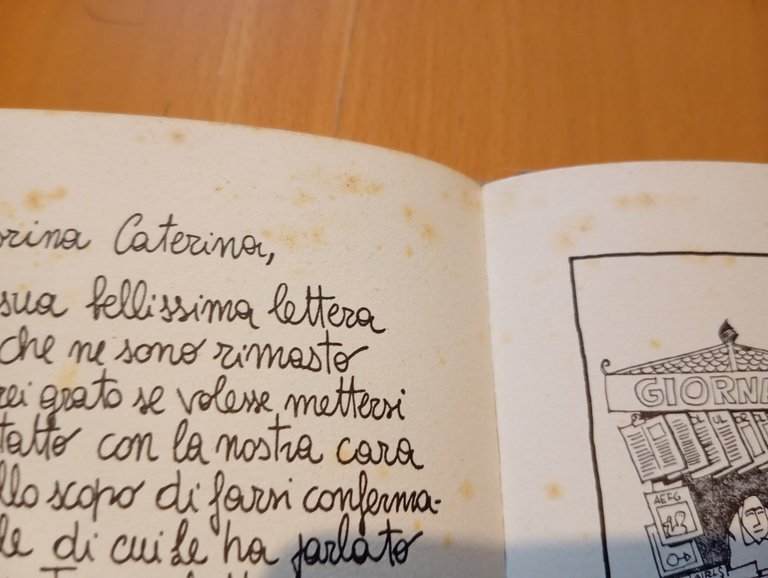 orina Caterina,
sua bellissima lettera
che ne sono rimasto
rei grato se volesse mettersi
tatto con la nostra cara
llo scopo di farsi conferma-
le di cui Le ha parlato
GIORNA
AEFG